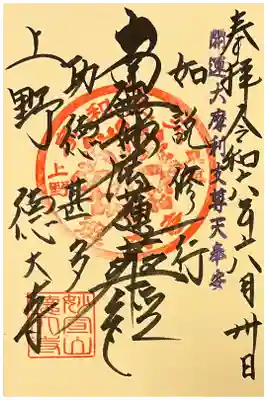 奉拝 令和六年八月卅日
開運大摩利支尊天奉安
如説修行
南無妙法蓮華経
功徳甚多
上野 徳大寺
上野
妙宣山
徳大寺